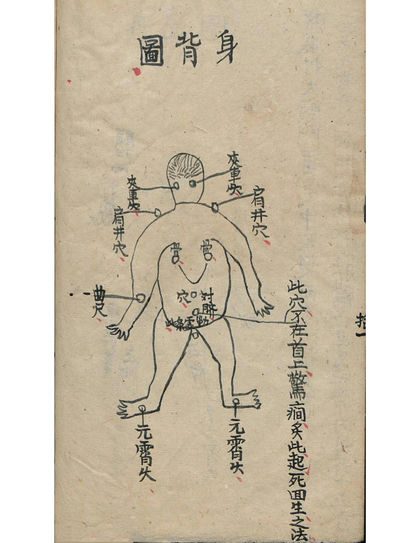 身背圖
夾車穴
夾車穴
肩井穴
肩井穴
膏
膏
曲尺
穴
對臍
元霄火
元霄火
此穴不在首上驚癇炙此起死回生之法